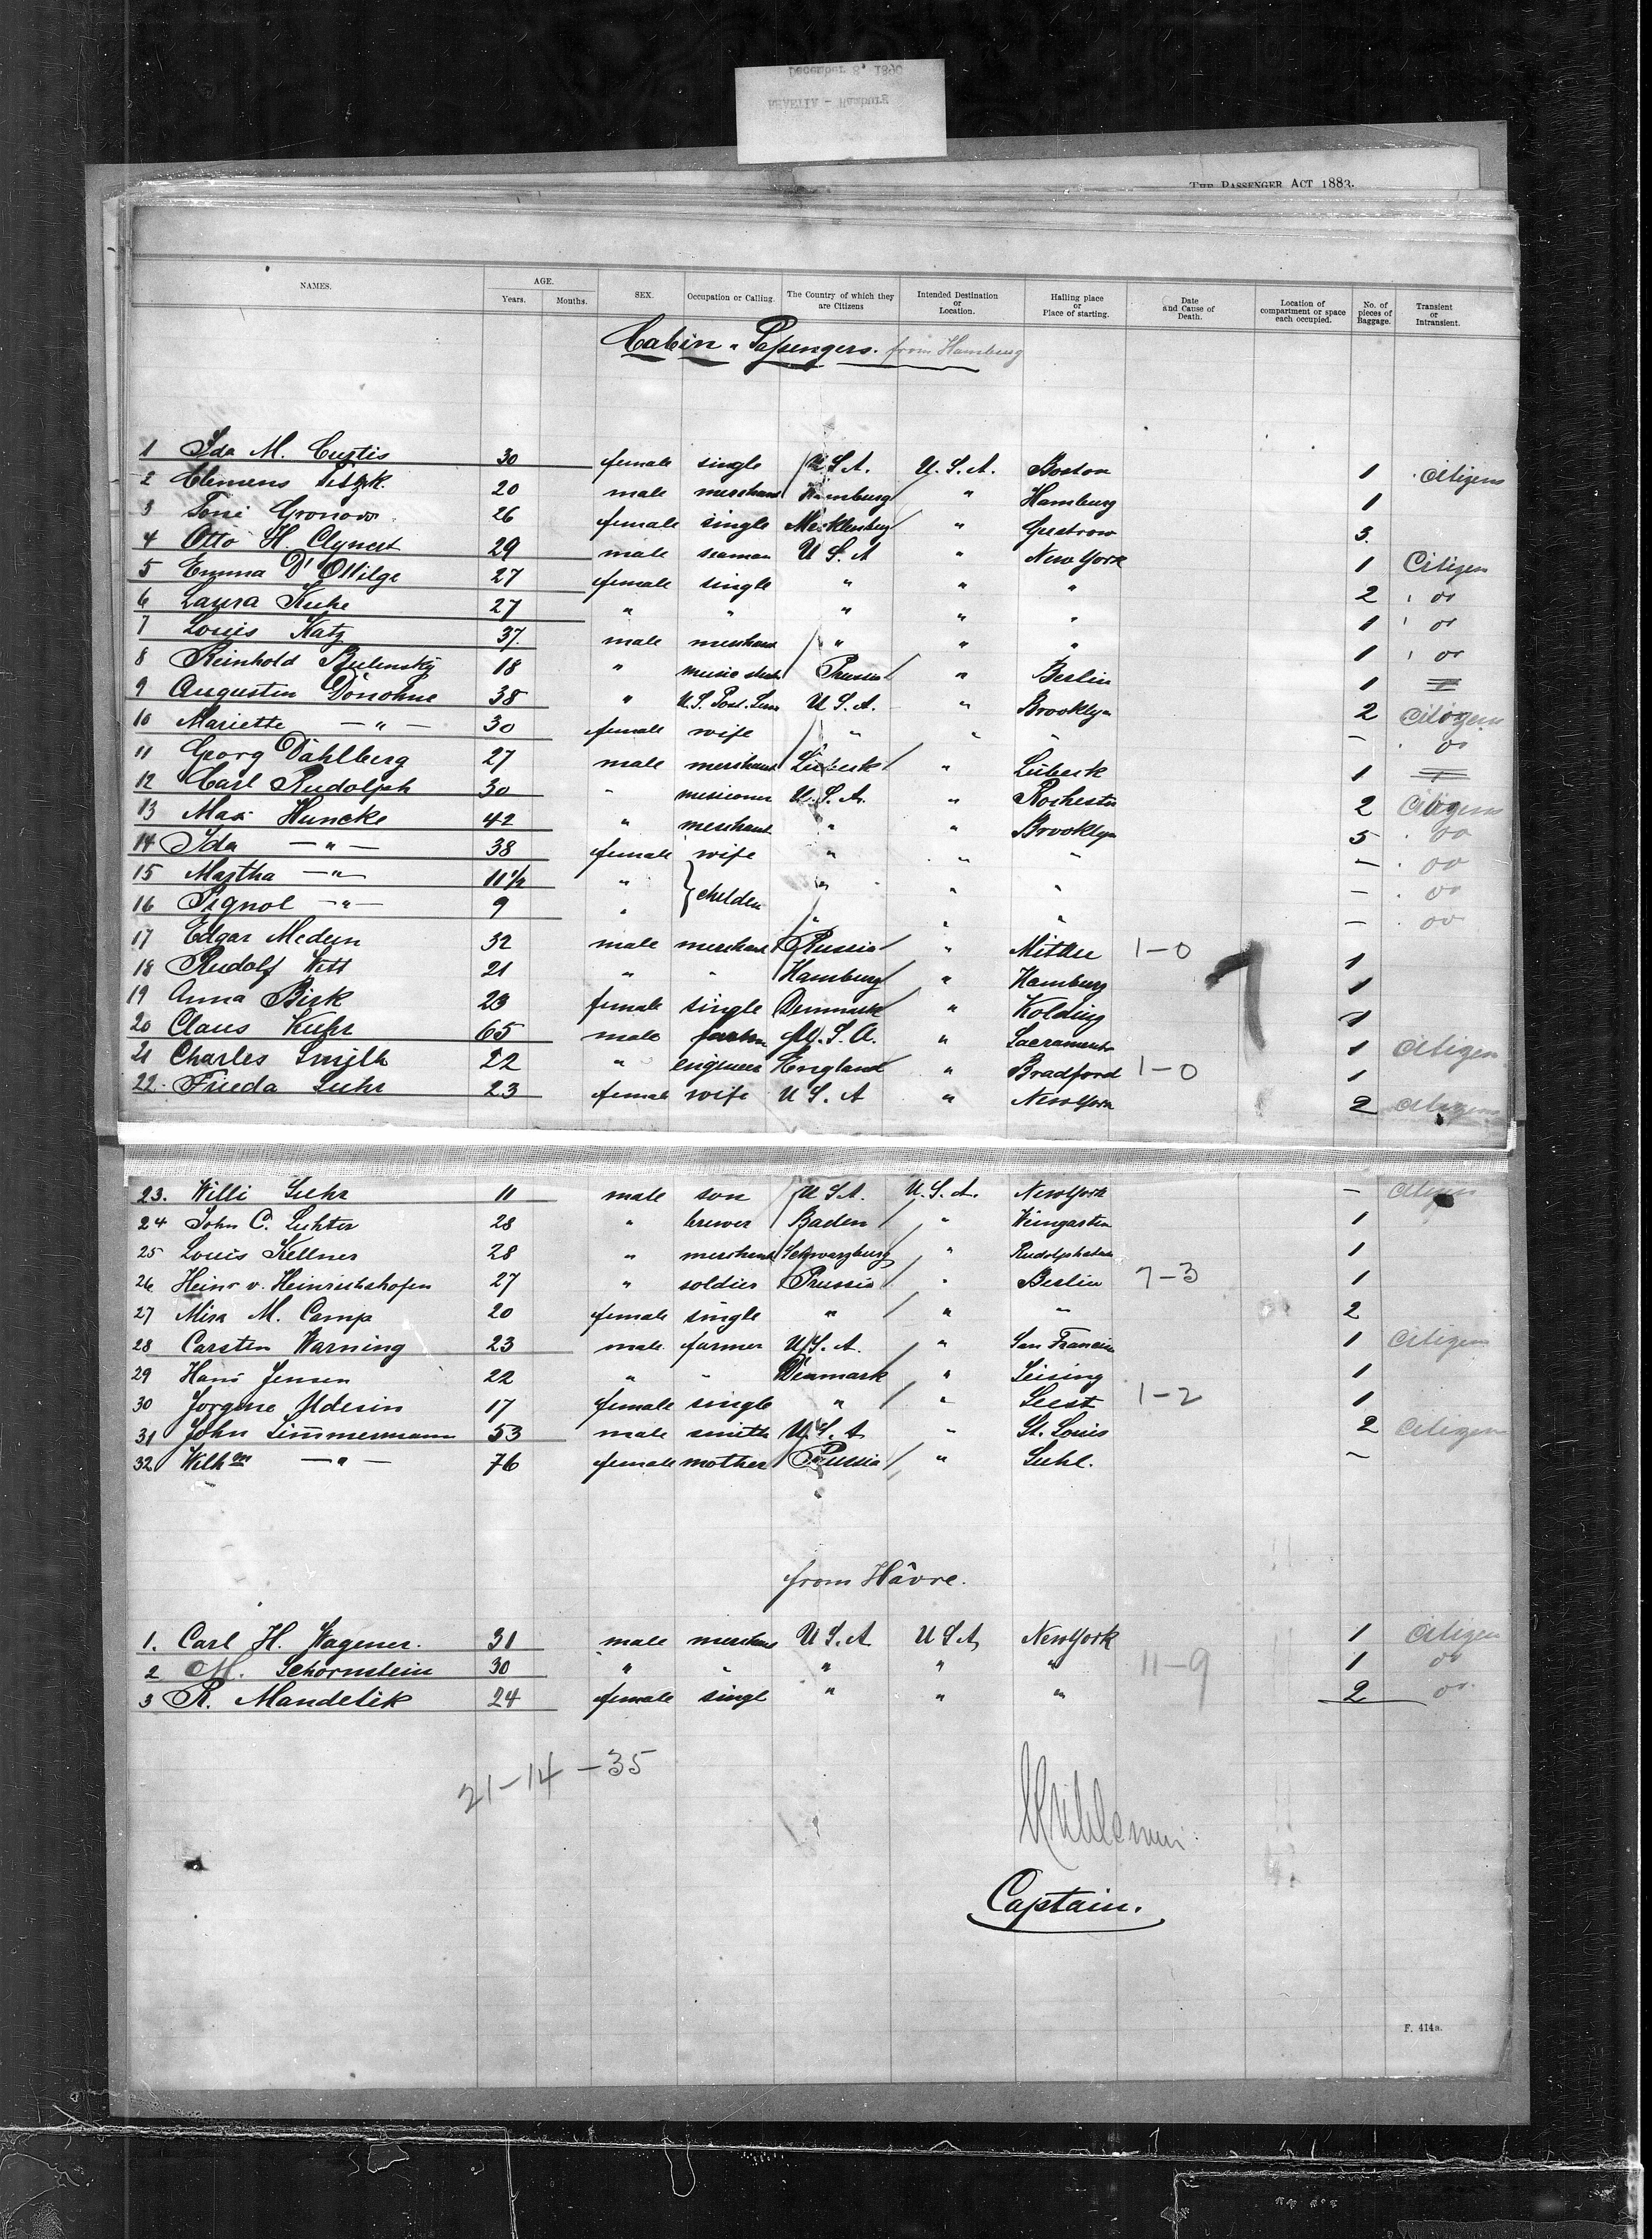 December 8, 1890
RHAETIA - Hamburg
THE PASSENGER ACT 1883.
NAMES. AGE. Years. Months. SEX. Occupation or Calling. The Country of which they are Citizens Intended Destination or Location. Halling place or Place of starting. Date and Cause of Death. Location of compartment or space each occupied. No. of pieces of Baggage. Transient or Intransient.
Cabin - Passengers. from Hamburg
1 Ida M. Curtis 30 female single U.S.A. U.S.A. Boston 1 Citizens
2 Clemens 20 male merchant Hamburg " Hamburg 1
3 Toni Gronow 26 female single Mecklenburg " Guestrow 3.
4 Otto H. Clynest 29 male seaman U.S.A " New York 1 Citizen
5 Emma D'Ottilge 27 female single " " " 2 " do
6 Laura Kuhe 27 " " " " " 1 " do
7 Louis Katz 37. male merchant " " " 1 " do
8 Reinhold Bulensky 18 " music stud. Prussia " Berlin 1
9 Augustin Donohue 38 " U.S. Post. Serv U.S.A. " Brooklyn 2 Citizens
10 Mariette — " — 30 female wife " " " — " do
11 Georg Dahlberg 27 male merchant Lübeck " Lübeck 1
12 Carl Rudolph 30 " missioner U.S.A. " Rochester 2 Citizens
13 Max Huncke 42 " merchant " " Brooklyn 5 " do
14 Ida — " — 38 female wife " " " — " do
15 Martha — " — 11 1/2 " } children " " " — " do
16 Signol — " — 9 " " " " — " do
17 Edgar Medem 32 male merchant Russia " Mittau 1-0 1
18 Rudolf Witt 21 " " Hamburg " Hamburg 1
19 Anna Birk 23 female single Denmark " Kolding 1
20 Claus Kuhr 65 male U.S.A. " Sacramento 1 Citizen
21 Charles Smith 22 " engineer England " Bradford 1-0 1
22. Frieda Suhr 23 female wife U.S.A " New York 2 Citizens
23. Willi Suhr 11 male son U.S.A. U.S.A. New York — Citizens
24 John C. Lichter 28 " brewer Baden " Weingarten 1
25 Louis Kellner 28 " merchant Schwarzburg " Rudolphstadt 1
26 Heinr v. Heinrichshofen 27 " soldier Prussia " Berlin 7-3 1
27 Miss M. Camp 20 female single " " " 2
28 Carsten Warning 23 male farmer U.S.A. " San Francisco 1 Citizen
29 Hans Jensen 22 " " Denmark " Seising 1
30 Jorgine Uderin 17 female single " " Seest 1-2 1
31 John Simmermann 53 male smith U.S.A " St. Louis 2 Citizen
32 Wilhne — " — 76 female mother Prussia " Suhl. —
from Hâvre.
1. Carl H. Wagener. 31 male merchant U.S.A U.S.A. New York 1 Citizen
2 M. Schornstein 30 " " " " " 11-9 1 do
3 R. Mandelik 24 female singl " " " 2 do.
21-14-35
Captain.
F. 414a.